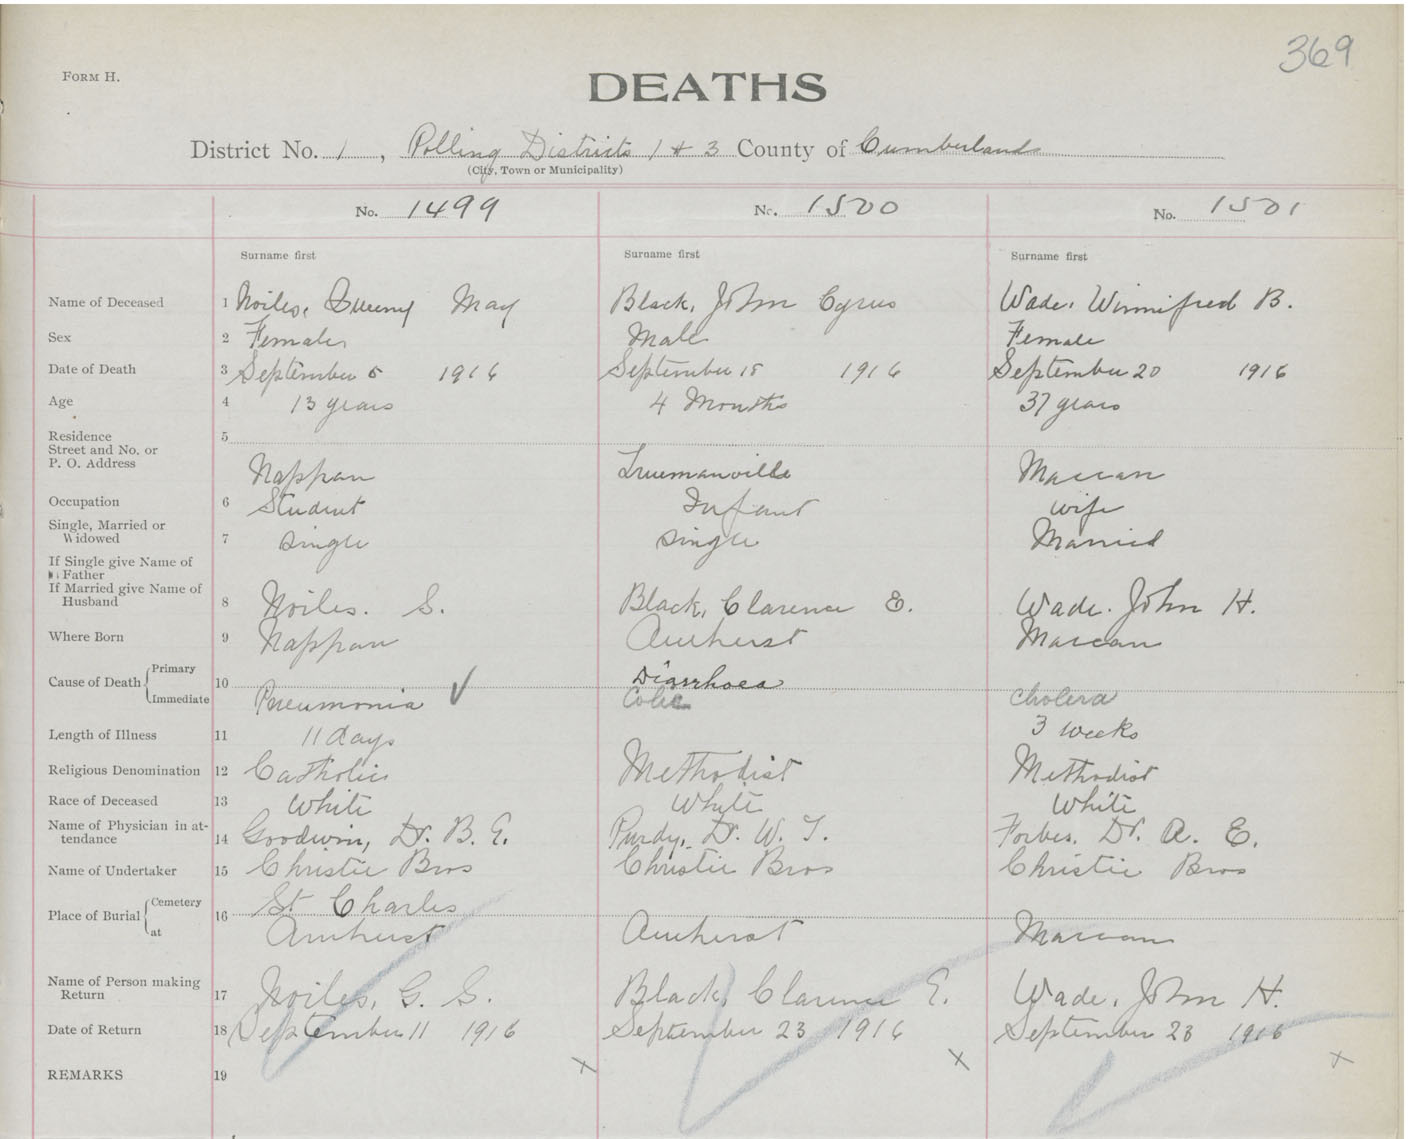 369
FORM H.
DEATHS
District No. 1, Polling Districts 1 & 3 County of Cumberland
(City, Town or Municipality)
No. 1499 No. 1500 No. 1501
Surname first Surname first Surname first
Name of Deceased 1 Noiles, May Black, John Cyrus Wade, Winnifred B.
Sex 2 Female Male Female
Date of Death 3 September 1916 September 1916 September 20 1916
Age 4 13 years 4 Months 37 years
Residence 5
Street and No. or
P. O. Address Nappan Truemanville Maccan
Occupation 6 Student Infant wife
Single, Married or
Widowed 7 single single Married
If Single give Name of
Father
If Married give Name of
Husband 8 Noiles. S. Black, Clarence E. Wade. John H.
Where Born 9 Nappan Amherst Maccan
Cause of Death Primary 10 Diarrhoea
Immediate Pneumonia ✓ Colic cholera
Length of Illness 11 11 days 3 weeks
Religious Denomination 12 Catholic Methodist Methodist
Race of Deceased 13 White White White
Name of Physician in at-
tendance 14 Goodwin, Dr. B. E. Purdy, Dr. W. T. Forbes, Dr. A. E.
Name of Undertaker 15 Christie Bros Christie Bros Christie Bros
Place of Burial Cemetery 16 St Charles
at Amherst Amherst Maccan
Name of Person making
Return 17 Noiles, G. S. Black, Clarence E. Wade, John H.
Date of Return 18 September 11 1916 September 23 1916 September 23 1916
REMARKS 19 x x x